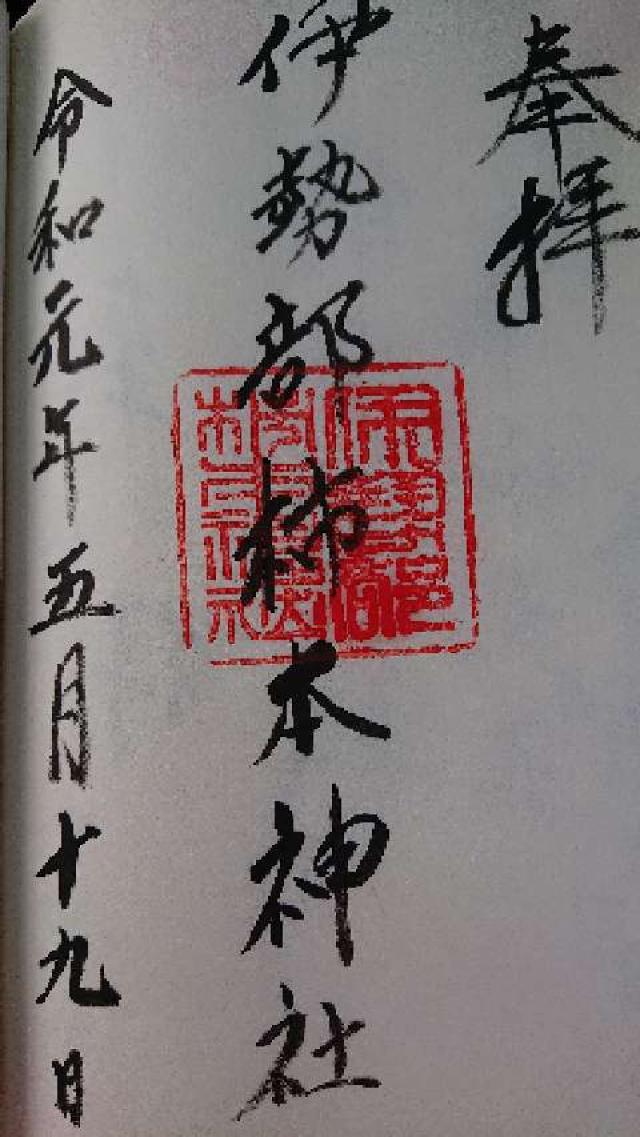 奉拝
伊勢部柿本神社
令和元年五月十九日